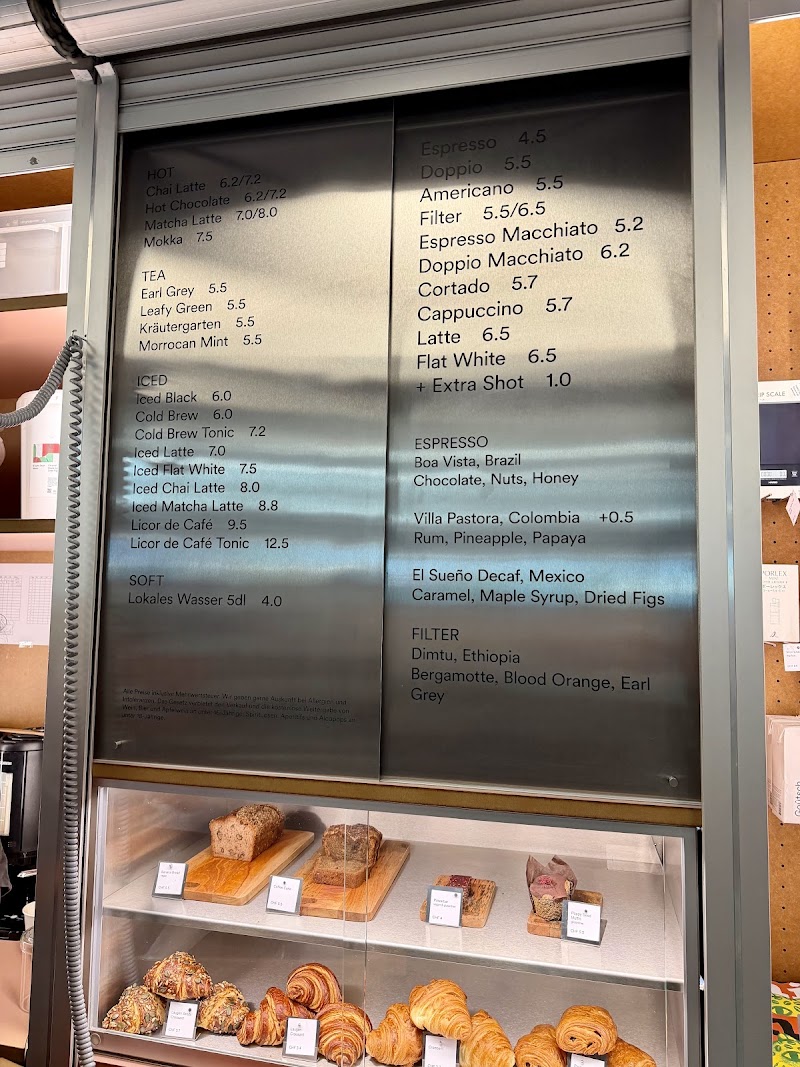 HOT
Chai Latte 6.2/7.2
Hot Chocolate 6.2/7.2
Matcha Latte 7.0/8.0
Mokka 7.5
TEA
Earl Grey 5.5
Leafy Green 5.5
Kräutergarten 5.5
Morrocan Mint 5.5
ICED
Iced Black 6.0
Cold Brew 6.0
Cold Brew Tonic 7.2
Iced Latte 7.0
Iced Flat White 7.5
Iced Chai Latte 8.0
Iced Matcha Latte 8.8
Licor de Café 9.5
Licor de Café Tonic 12.5
SOFT
Lokales Wasser 5dl 4.0
Espresso 4.5
Doppio 5.5
Americano 5.5
Filter 5.5/6.5
Espresso Macchiato 5.2
Doppio Macchiato 6.2
Cortado 5.7
Cappuccino 5.7
Latte 6.5
Flat White 6.5
+ Extra Shot 1.0
ESPRESSO
Boa Vista, Brazil
Chocolate, Nuts, Honey
Villa Pastora, Colombia +0.5
Rum, Pineapple, Papaya
El Sueño Decaf, Mexico
Caramel, Maple Syrup, Dried Figs
FILTER
Dimtu, Ethiopia
Bergamotte, Blood Orange, Earl
Grey
SCALE